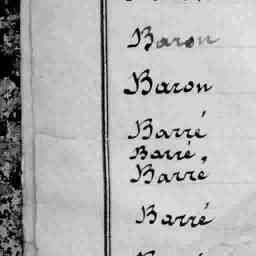 Baron
Baron
Barré
Barré,
Barré
Barré